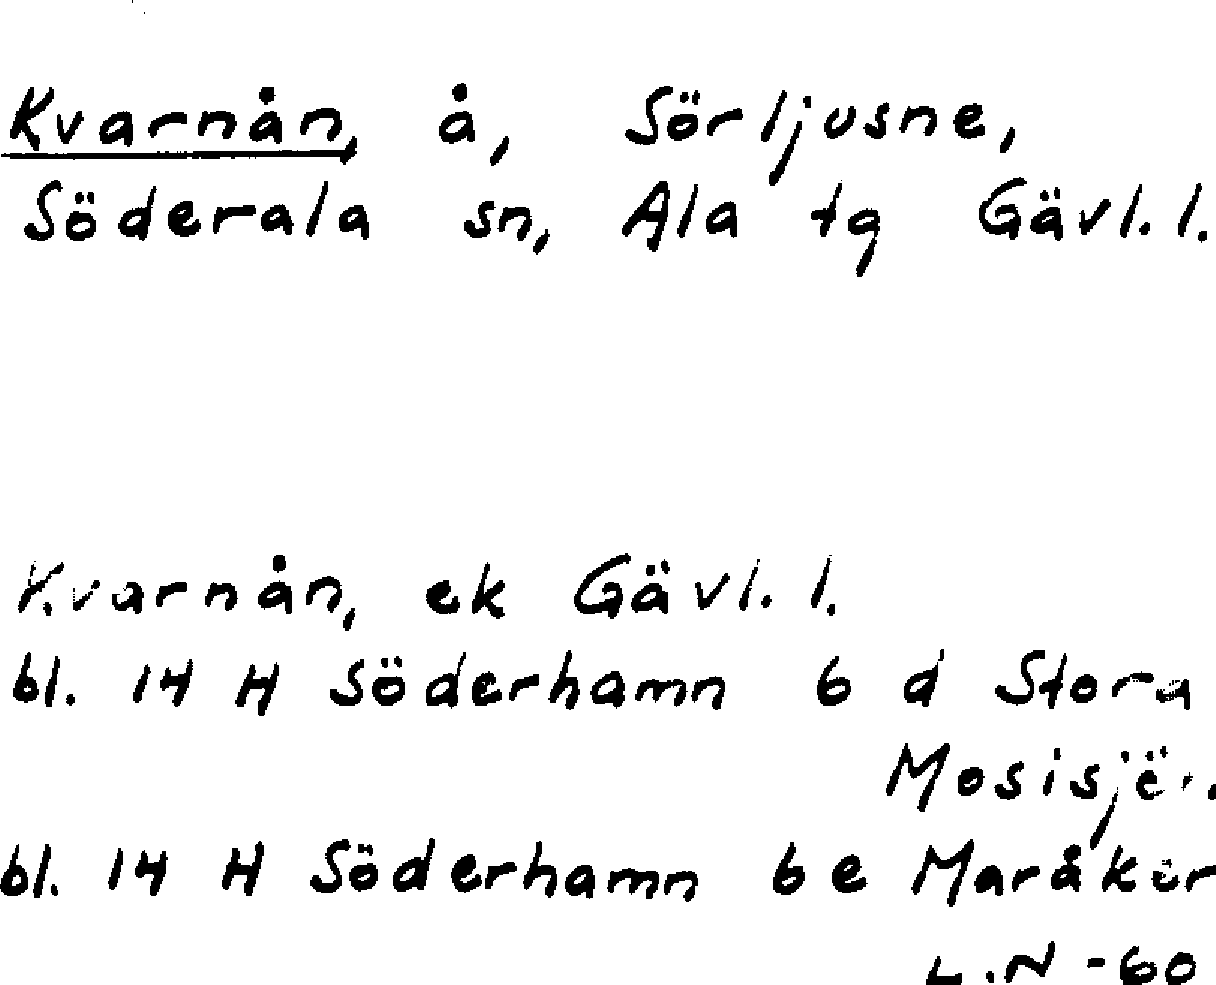 Kvarnån, å, Sörljusne,
Söderala sn, Ala tg Gävl. l.
Kvarnån, ek Gävl. l.
bl. 14 H Söderhamn 6 d Stora
bl. 14 H Söderhamn 6 e Maråker
L.N -60